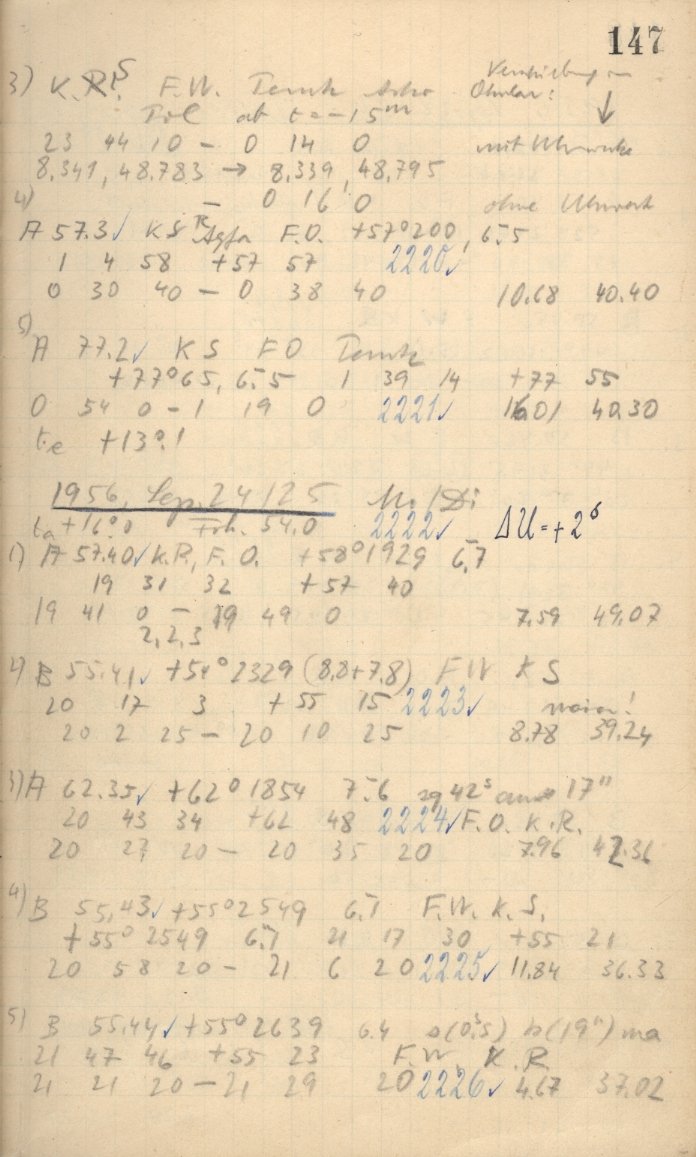 147
3) K.R.S F.W. Verschiebung
Pol ab t=-15m Okular: ↓
23 44 10 - 0 14 0 mit Uhrwerk
8.341, 48.783 → 8.339, 48.795
4) - 0 16 0 ohne Uhrwerk
A 57.3✓ KS Agfa F.O. +57°200, 6.5
1 4 58 +57 57 2220✓
0 30 40 - 0 38 40 10.68 40.40
5)
A 77.2✓ KS FO
+77°65, 6.5 1 39 14 +77 55
0 54 0 - 1 19 0 2221✓ 16.01 40.30
te +13°.1
1956, Sep. 24/25 Mo/Di
ta +16°.0 54.0 2222✓ ΔU=+2s
1) A 57.40✓ K.R, F.O. +58°1929 6.7
19 31 32 +57 40
19 41 0 - 19 49 0 7.59 49.07
2, 2, 3
2) B 55.41✓ +54°2329 (8.8+7.8) F.W KS
20 17 3 +55 15 2223✓
20 2 25 - 20 10 25 8.78 39.24
3) A 62.35✓ +62°1854 7.6 42s 17"
20 43 34 +62 48 2224✓ F.O. K.R.
20 27 20 - 20 35 20 7.96 42.36
4) B 55.43✓ +55°2549 6.7 F.W. K.S.
+55°2549 6.7 21 17 30 +55 21
20 58 20 - 21 6 20 2225✓ 11.84 36.33
5) B 55.44✓ +55°2639 6.4 a(0.5) b(19")
21 47 46 +55 23 F.W. K.R.
21 21 20 - 21 29 20 2226✓ 4.67 37.02